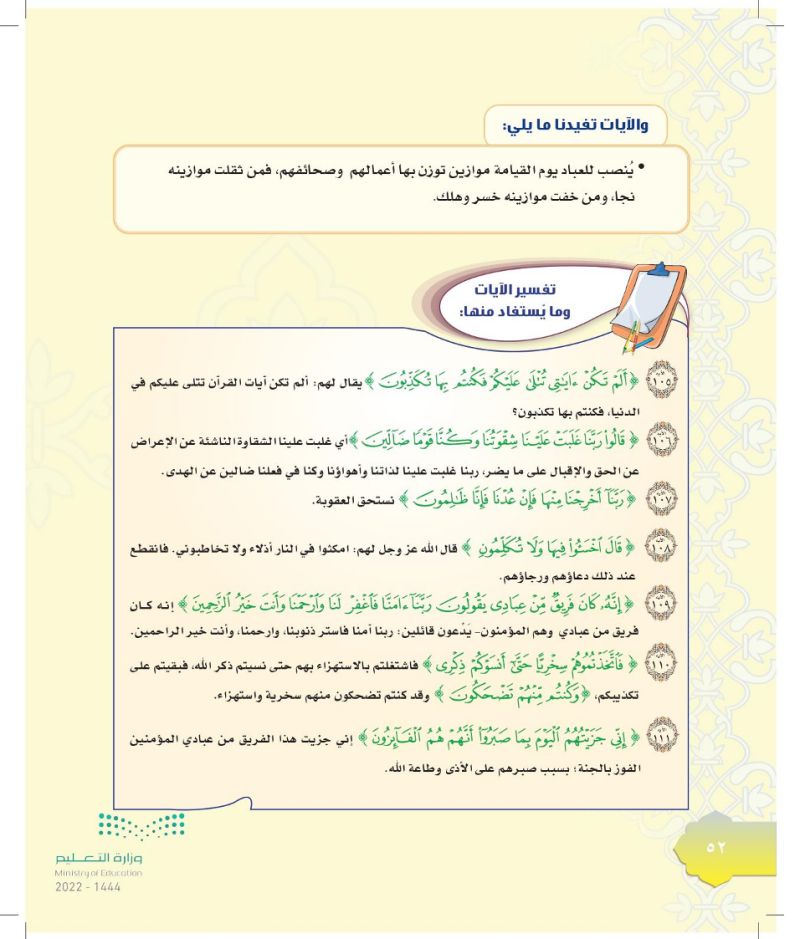 والآيات تفيدنا ما يلي:
• يُنصب للعباد يوم القيامة موازين توزن بها أعمالهم وصحائفهم، فمن ثقلت موازينه
نجا، ومن خفت موازينه خسر وهلك.
تفسير الآيات
وما يُستفاد منها:
١٠٥ ﴿ أَلَمْ تَكُنْ ءَايَٰتِى تُتْلَىٰ عَلَيْكُمْ فَكُنتُم بِهَا تُكَذِّبُونَ ﴾ يقال لهم: ألم تكن آيات القرآن تتلى عليكم في
الدنيا، فكنتم بها تكذبون؟
١٠٦ ﴿ قَالُوا۟ رَبَّنَا غَلَبَتْ عَلَيْنَا شِقْوَتُنَا وَكُنَّا قَوْمًا ضَآلِّينَ ﴾ أي غلبت علينا الشقاوة الناشئة عن الإعراض
عن الحق والإقبال على ما يضر، ربنا غلبت علينا لذاتنا وأهواؤنا وكنا في فعلنا ضالين عن الهدى.
١٠٧ ﴿ رَبَّنَآ أَخْرِجْنَا مِنْهَا فَإِنْ عُدْنَا فَإِنَّا ظَٰلِمُونَ ﴾ نستحق العقوبة.
١٠٨ ﴿ قَالَ ٱخْسَـُٔوا۟ فِيهَا وَلَا تُكَلِّمُونِ ﴾ قال الله عز وجل لهم: امكثوا في النار أذلاء ولا تخاطبوني. فانقطع
عند ذلك دعاؤهم ورجاؤهم.
١٠٩ ﴿ إِنَّهُۥ كَانَ فَرِيقٌ مِّنْ عِبَادِى يَقُولُونَ رَبَّنَآ ءَامَنَّا فَٱغْفِرْ لَنَا وَٱرْحَمْنَا وَأَنتَ خَيْرُ ٱلرَّٰحِمِينَ ﴾ إنه كان
فريق من عبادي وهم المؤمنون- يَدْعون قائلين: ربنا آمنا فاستر ذنوبنا، وارحمنا، وأنت خير الراحمين.
١١٠ ﴿ فَٱتَّخَذْتُمُوهُمْ سِخْرِيًّا حَتَّىٰٓ أَنسَوْكُمْ ذِكْرِى ﴾ فاشتغلتم بالاستهزاء بهم حتى نسيتم ذكر الله، فبقيتم على
تكذيبكم، ﴿ وَكُنتُم مِّنْهُمْ تَضْحَكُونَ ﴾ وقد كنتم تضحكون منهم سخرية واستهزاء.
١١١ ﴿ إِنِّى جَزَيْتُهُمُ ٱلْيَوْمَ بِمَا صَبَرُوٓا۟ أَنَّهُمْ هُمُ ٱلْفَآئِزُونَ ﴾ إني جزيت هذا الفريق من عبادي المؤمنين
الفوز بالجنة؛ بسبب صبرهم على الأذى وطاعة الله.
٥٢
وزارة التعليم
Ministry of Education
2022 - 1444